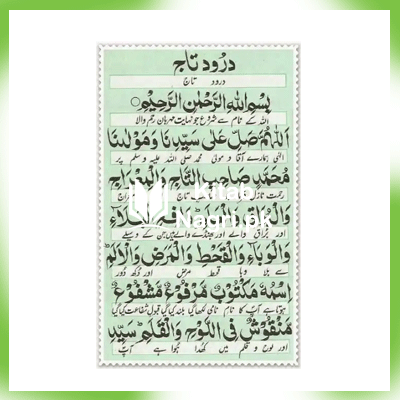 درود تاج
درود تاج
بِسْمِ اللهِ الرَّحْمٰنِ الرَّحِيْمِ
اللہ کے نام سے شروع جو نہایت مہربان رحم والا
اَللّٰهُمَّ صَلِّ عَلٰى سَيِّدِنَا وَمَوْلٰنَا
الٰہی ہمارے آقا و مولیٰ محمد صلی اللہ علیہ و سلم پر
مُحَمَّدٍ صَاحِبِ التَّاجِ وَالْمِعْرَاجِ
رحمت نازل
Kitab
وَالْبُرَاقِ
Nagri.pk
اور براق والے اور جھنڈے والے ہیں جن کے وسیلے
وَالْوَبَآءِ وَالْقَحْطِ وَالْمَرَضِ وَالْاَلَمِ
سے بلا وبا قحط مرض اور دُکھ دُور
اِسْمُهٗ مَكْتُوْبٌ مَّرْفُوْعٌ مَّشْفُوْعٌ
ہوتا ہے آپ کا نام نامی لکھا گیا بلند کیا گیا قبول شفاعت کیا گیا
مَنْقُوْشٌ فِى اللَّوْحِ وَالْقَلَمِ سَيِّدِ
اور لوح و قلم میں کھدا ہوا ہے آپ